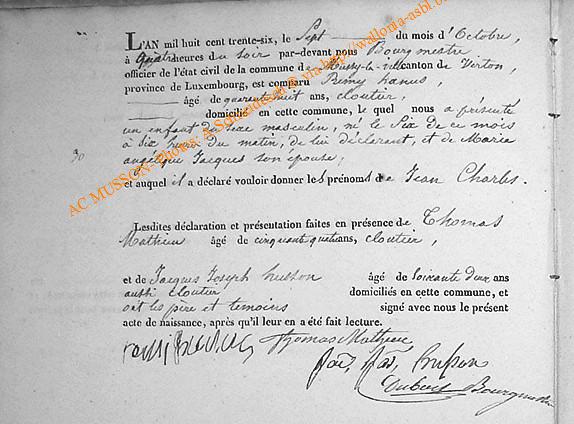 L'AN mil huit cent trente-six, le Sept du mois d'Octobre,
à quatre heures du soir par-devant nous Bourgmestre
officier de l'état civil de la commune de Mussy-la-ville canton de Virton,
province de Luxembourg, est comparu Remy hanus,
âgé de quarante huit ans, cloutier,
domicilié en cette commune, lequel nous a présenté
un enfant du sexe masculin, né le Six de ce mois
30 à six heures du matin, de lui déclarant, et de Marie
angelique Jacques son épouse,
et auquel il a déclaré vouloir donner les prénoms de Jean Charles.
Lesdites déclaration et présentation faites en présence de Thomas
Mathieu âgé de cinquante quatre ans, cloutier,
et de Jacques Joseph husson âgé de soixante deux ans
aussi cloutier domiciliés en cette commune, et
ont les père et temoins signé avec nous le présent
acte de naissance, après qu'il leur en a été fait lecture.
Thomas Mathieu
husson
Dubois Bourgmestre
AC MUSSON-Photos: A Schmidt @ via http://walloma-asbl.b